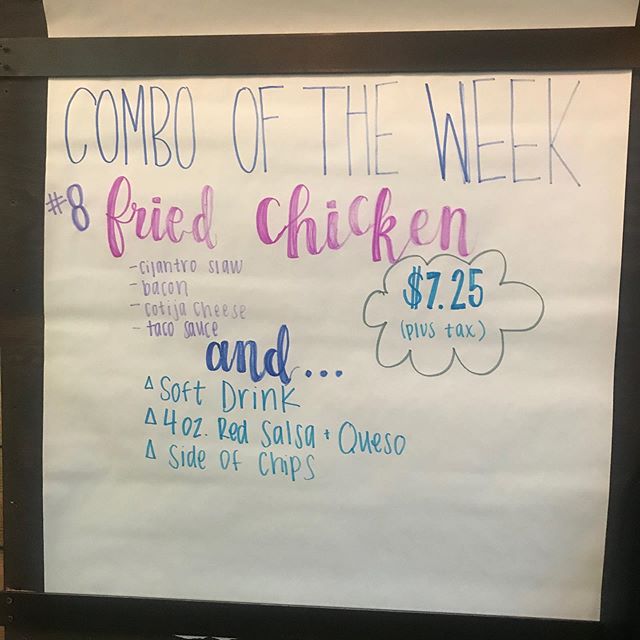 COMBO OF THE WEEK
#8 fried chicken
- cilantro slaw
- bacon
- cotija cheese
- taco sauce
$7.25
(plus tax)
and...
Δ Soft Drink
Δ 4 oz. Red Salsa + Queso
Δ Side of Chips